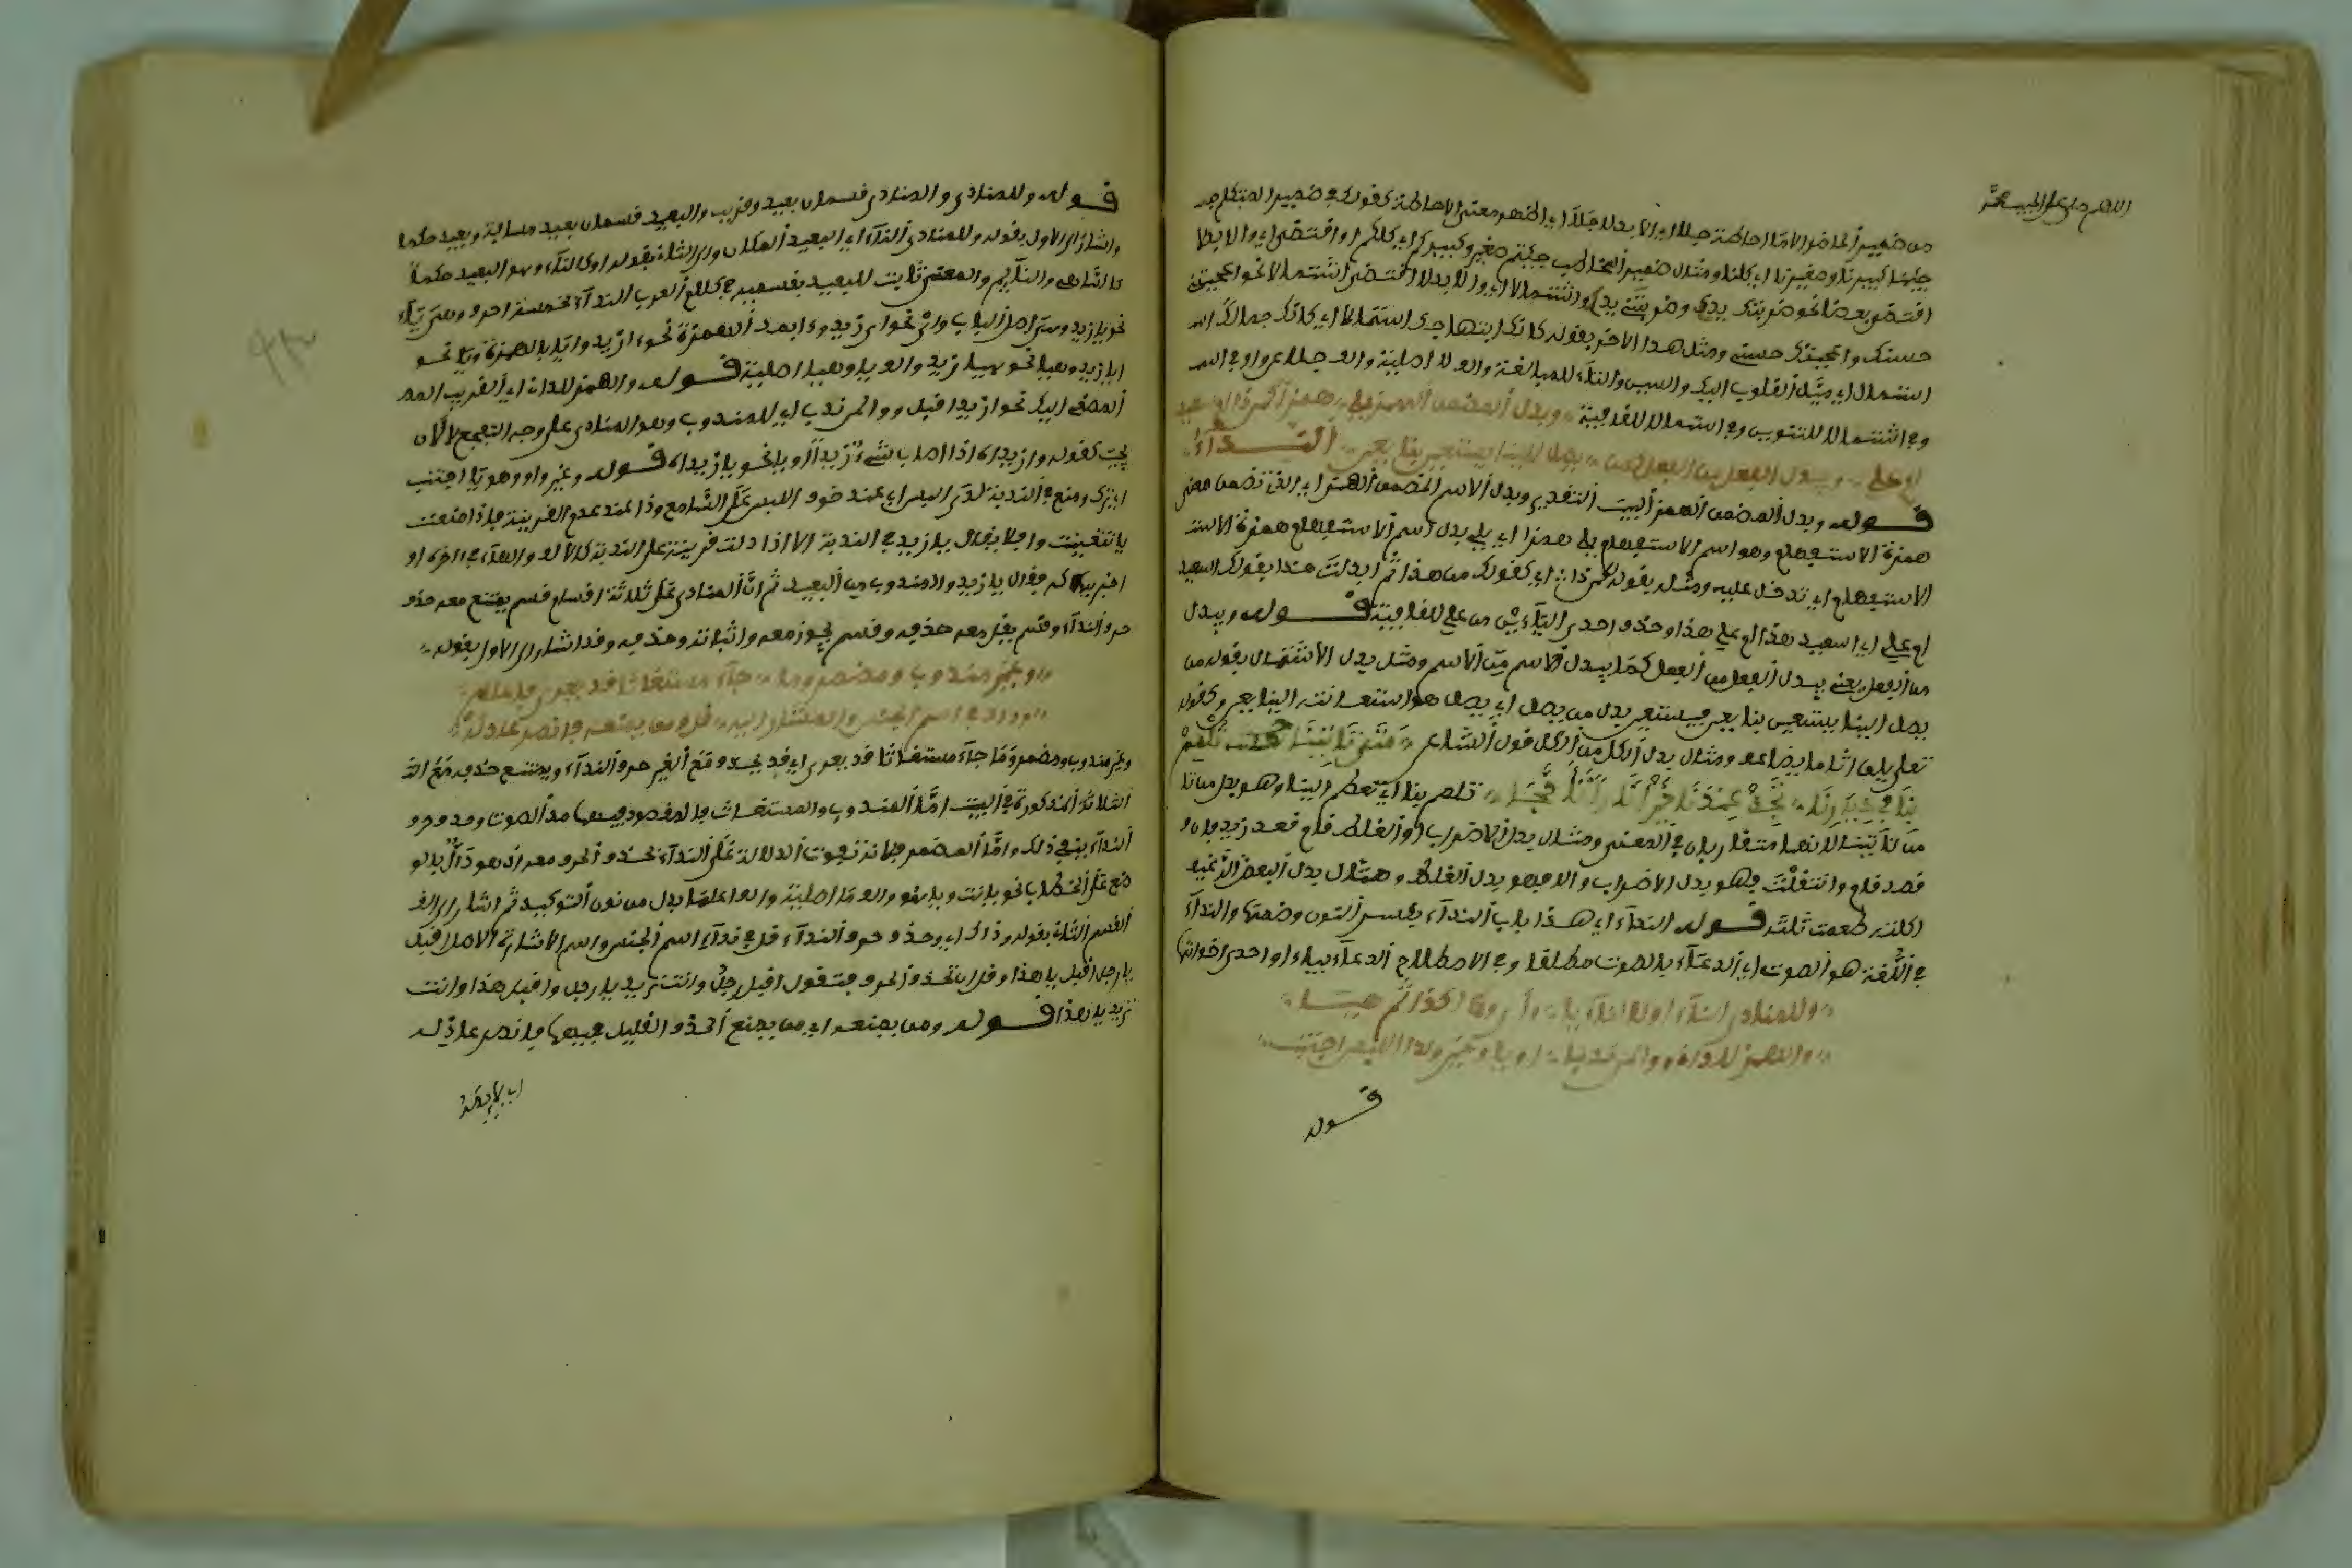 اللهم صل على الحبيب محمد
من ضمير الحاضر الا ما احاطة جلا اي الا بدلا جلا اي اظهر معنى الاحاطة كقولك في ضمير المتكلم جه
جئنا كبيرنا وصغيرنا اي كلنا ومثال ضمير المخاطب جئتم صغيركم وكبيركم اي كلكم او اقتضى اي والا بدلا
اقتضى بعضا نحو ضربتك يدك وضربتني يدي او اشتمالا اي والا بدلا اقتضى اشتمالا نحو اعجبتني
حسنك واعجبتك حسني ومثل هذا الاخر بقوله كانك ابتهاجك استمالا اي كانك جمالك اسـ
استمال اي ميل القلوب اليك والسين والتاء للمبالغة والف لا اصلية والف جلا عن واو في اسـ
وفي اشتمالا للتنوين وفي استمالا للقافية وبدل المضمن الهمز يلي همزا كمن ذا اسعيد
ام علي ويبدل الفعل من الفعل كمن يصل الينا يستعن بنا يعن النداء
قوله وبدل المضمن الهمز البيت التقدير وبدل الاسم المضمن الهمز اي الذي تضمن معنى
همزة الاستفهام وهو اسم الاستفهام يلي همزا اي يلي بدل اسم الاستفهام همزة الاستـ
الاستفهام اي تدخل عليه ومثله بقوله كمن ذا اي كقولك من هذا ثم ابدلت هذا بقولك اسعيد
ام علي اي اسعيد هذا ام علي هذا وحذف احدى الياءين من علي للقافية قوله ويبدل
من الفعل يعني يبدل الفعل من الفعل كما يبدل الاسم من الاسم ومثل بدل الاشتمال بقوله من
يصل الينا يستعن بنا يعن فيستعن بدل من يصل اي يصل هو استعانته الينا يعن وكقوله
تعالى يلق اثاما يضاعف ومثال بدل الكل من الكل قول الشاعر متى تاتنا تلمم
بنا في ديارنا تجد
تلمم بنا اي تعظم الينا وهو بدل من تا
من تاتينا لانهما متقاربان في المعنى ومثال بدل الاضراب او الغلط قام قعد زيد فان
قصد قام وانتقلت فهو بدل الاضراب والا فهو بدل الغلط ومثال بدل البعض الرغيف
اكلته طعمت ثلثه قوله النداء اي هذا باب النداء بكسر النون وضمها والنداء
في اللغة هو الصوت اي الدعاء بالصوت مطلقا وفي الاصطلاح الدعاء بياء او احدى اخواتها
وللمنادى الناء او كالناء يا واي وءا كذا ايا ثم هيا
والهمز للداني ووا لمن ندب او يا وغير وا لدى اللبس اجتنب
قوله
قوله وللمنادى والمنادى قسمان بعيد وقريب والبعيد قسمان بعيد مسافة وبعيد حكما
واشار الى الاول بقوله وللمنادى الناء اي البعيد المكان والى الثاني بقوله او كالناء وهو البعيد حكما
كالساهي والنائم والمعنى ثابت للبعيد بقسميه في كلام العرب النداء بخمسة احرف وهي ياء
نحو يا زيد وهي اصل الباب واي نحو اي زيد وءا بمد الهمزة نحو ءا زيد وايا بالهمزة ويا نحو
ايا زيد وهيا نحو هيا زيد والف يا وهيا اصلية قوله والهمز للداني اي القريب المصـ
المصغي اليك نحو ازيد اقبل ووا لمن ندب اي للمندوب وهو المنادى على وجه التفجع
كقوله وا زيداه اذا اصاب شيء زيدا او يا نحو يا زيداه قوله وغير وا وهو يا اجتنب
اي ترك ومنع في الندبة لدى اللبس اي عند خوف اللبس على السامع وذا عند عدم القرينة فاذا امتنعت
يا تعينت وا فلا يقال يا زيد في الندبة الا اذا دلت قرينة على الندبة كالالف والهاء في اخره او
فيقال يا زيد والمندوب من البعيد ثم ان المنادى على ثلاثة اقسام قسم يمتنع معه حذف
حرف النداء وقسم يقل معه حذفه وقسم يجوز معه واثباته وحذفه وقد اشار الى الاول بقوله
وغير مندوب ومضمر وما جاء مستغاثا قد يعرى فاعلما
وذاك في اسم الجنس والمشار له قل ومن يمنعه فانصر عاذله
وغير مندوب ومضمر وما جاء مستغاثا قد يعرى اي قد يجرد مع الغير حرف النداء ويمتنع حذفه مع الـ
الثلاثة المذكورة في البيت اما المندوب والمستغاث فالمقصود فيهما مد الصوت وحذف حرف
النداء ينفي ذلك واما المضمر فانه تفوت الدلالة على النداء بحذف الحرف معه اذ هو دال بالو
ضع على الخطاب نحو يا انت ويا هو والف ما اصلية والف اعلما بدل من نون التوكيد ثم اشار الى القـ
القسم الثاني بقوله وذاك اي وحذف حرف النداء قل في نداء اسم الجنس واسم الاشارة الاصل قبل
يا رجل اقبل يا هذا وقل ان تحذف الحرف فتقول اقبل رجل وانت تريد يا رجل واقبل هذا وانت
تريد يا هذا قوله ومن يمنعه اي من يمنع الحذف القليل فيهما فانصر عاذله
اي لائمه